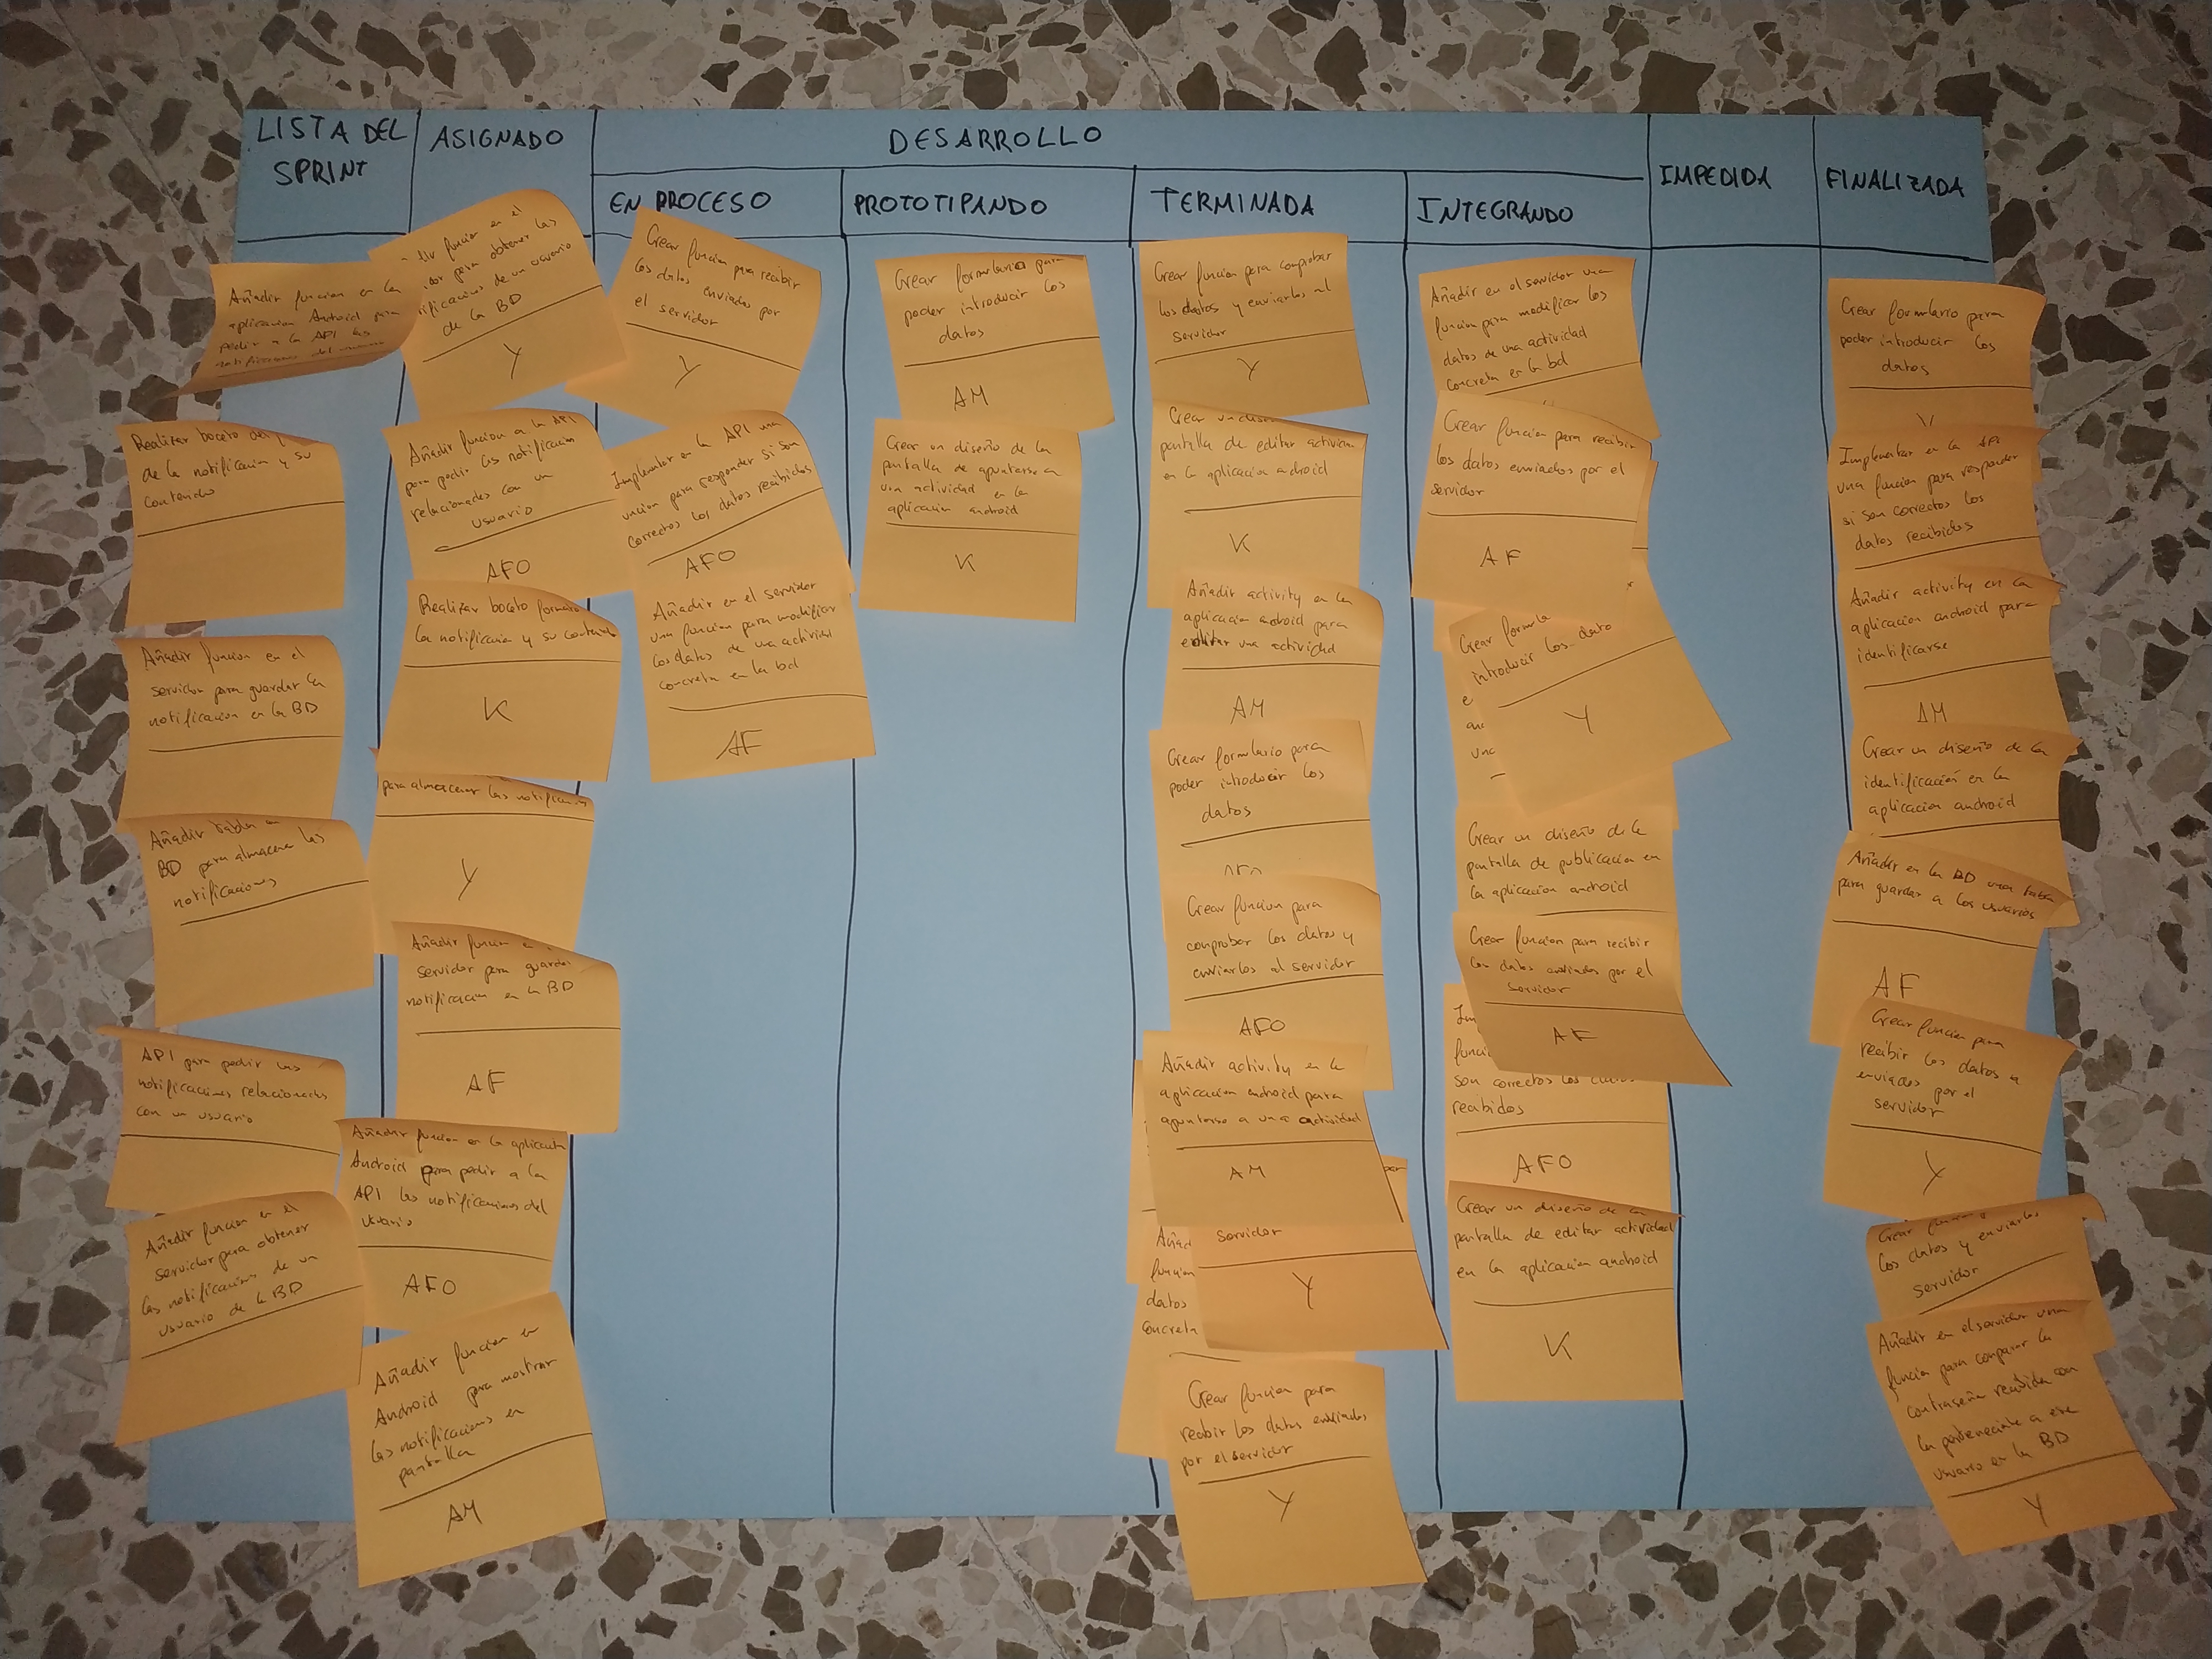 LISTA DEL
SPRINT
ASIGNADO
DESARROLLO
EN PROCESO
PROTOTIPANDO
TERMINADA
INTEGRANDO
IMPEDIDA
FINALIZADA
Añadir funcion en la
aplicacion Android para
pedir a la API las
notificaciones del
Realizar boceto del
de la notificacion y su
contenido
Añadir funcion en el
servidor para guardar la
notificacion en la BD
Añadir tabla
BD para almacenar las
notificaciones
API para pedir las
notificaciones relacionadas
con un usuario
Añadir funcion en el
servidor para obtener
las notificaciones de un
usuario de la BD
funcion en el
para obtener las
de un usuario
de la BD
Y
Añadir funcion a la API
para pedir las notificacion
relacionadas con un
usuario
AFO
Realizar boceto formato
la notificacion y su contenido
K
para almacenar las
Y
Añadir funcion
servidor para guardar
notificacion en la BD
AF
Añadir funcion en la
Android para pedir a la
API las notificaciones del
usuario
AFO
Añadir funcion en
Android para mostrar
las notificaciones en
pantalla
AM
Crear funcion para recibir
los datos enviados por
el servidor
Y
Implementar en la API una
funcion para responder si son
correctos los datos recibidos
AFO
Añadir en el servidor
una funcion para modificar
los datos de una actividad
concreta en la bd
AF
Crear formulario para
poder introducir los
datos
AM
Crear un diseño de la
pantalla de apuntarse a
una actividad en la
aplicacion android
K
Crear funcion para comprobar
los datos y enviarlos al
servidor
Y
Crear un
pantalla de editar actividad
en la aplicacion android
K
Añadir activity en la
aplicacion android para
editar una actividad
AM
Crear formulario para
poder introducir los
datos
Crear funcion para
comprobar los datos y
enviarlos al servidor
AFO
Añadir activity en la
aplicacion android para
apuntarse a una actividad
AM
servidor
Y
funcion
datos
concreta
Crear funcion para
recibir los datos enviados
por el servidor
Y
Añadir en el servidor una
funcion para modificar los
datos de una actividad
concreta en la bd
Crear funcion para recibir
los datos enviados por el
servidor
AF
Crear
introducir los
Y
Crear un diseño de la
pantalla de publicacion en
la aplicacion android
Crear funcion para recibir
los datos enviados por el
servidor
AF
son correctos los
recibidos
AFO
Crear un diseño de la
pantalla de editar actividad
en la aplicacion android
K
Crear formulario para
poder introducir los
datos
Implementar en la API
una funcion para responder
si son correctos los
datos recibidos
Añadir activity en la
aplicacion android para
identificarse
AM
Crear un diseño de la
identificación en la
aplicacion android
Añadir en la BD una tabla
para guardar a los usuarios
AF
Crear funcion para
recibir los datos
enviados por el
servidor
Y
Crear
los datos y enviarlos
servidor
Añadir en el servidor una
funcia para comparar la
contraseña recibida con
la perteneciente a ese
usuario en la BD
Y